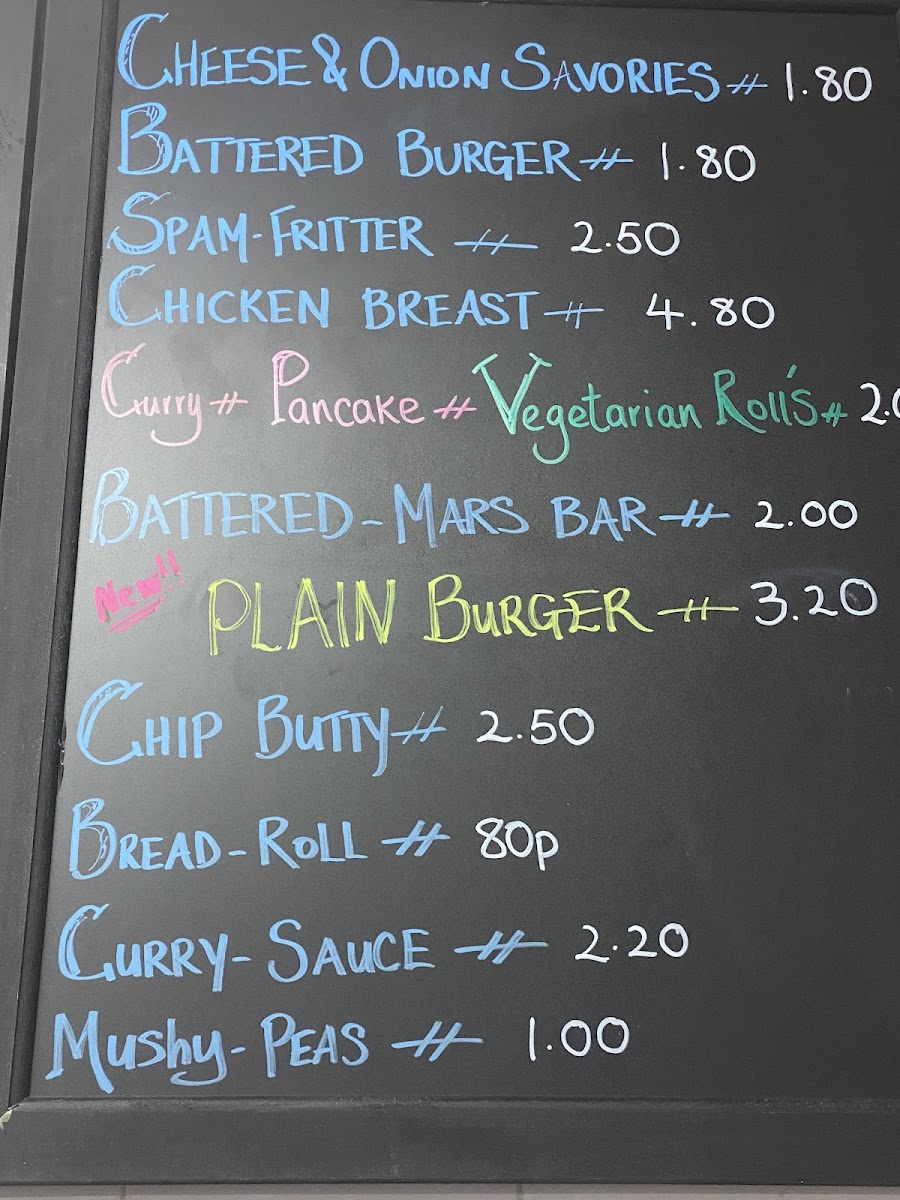 CHEESE & ONION SAVORIES # 1.80
BATTERED BURGER # 1.80
SPAM-FRITTER # 2.50
CHICKEN BREAST # 4.80
Curry # Pancake # Vegetarian Roll's # 2.0
BATTERED-MARS BAR # 2.00
New!! PLAIN BURGER # 3.20
CHIP BUTTY # 2.50
BREAD-ROLL # 80p
CURRY-SAUCE # 2.20
Mushy-PEAS # 1.00